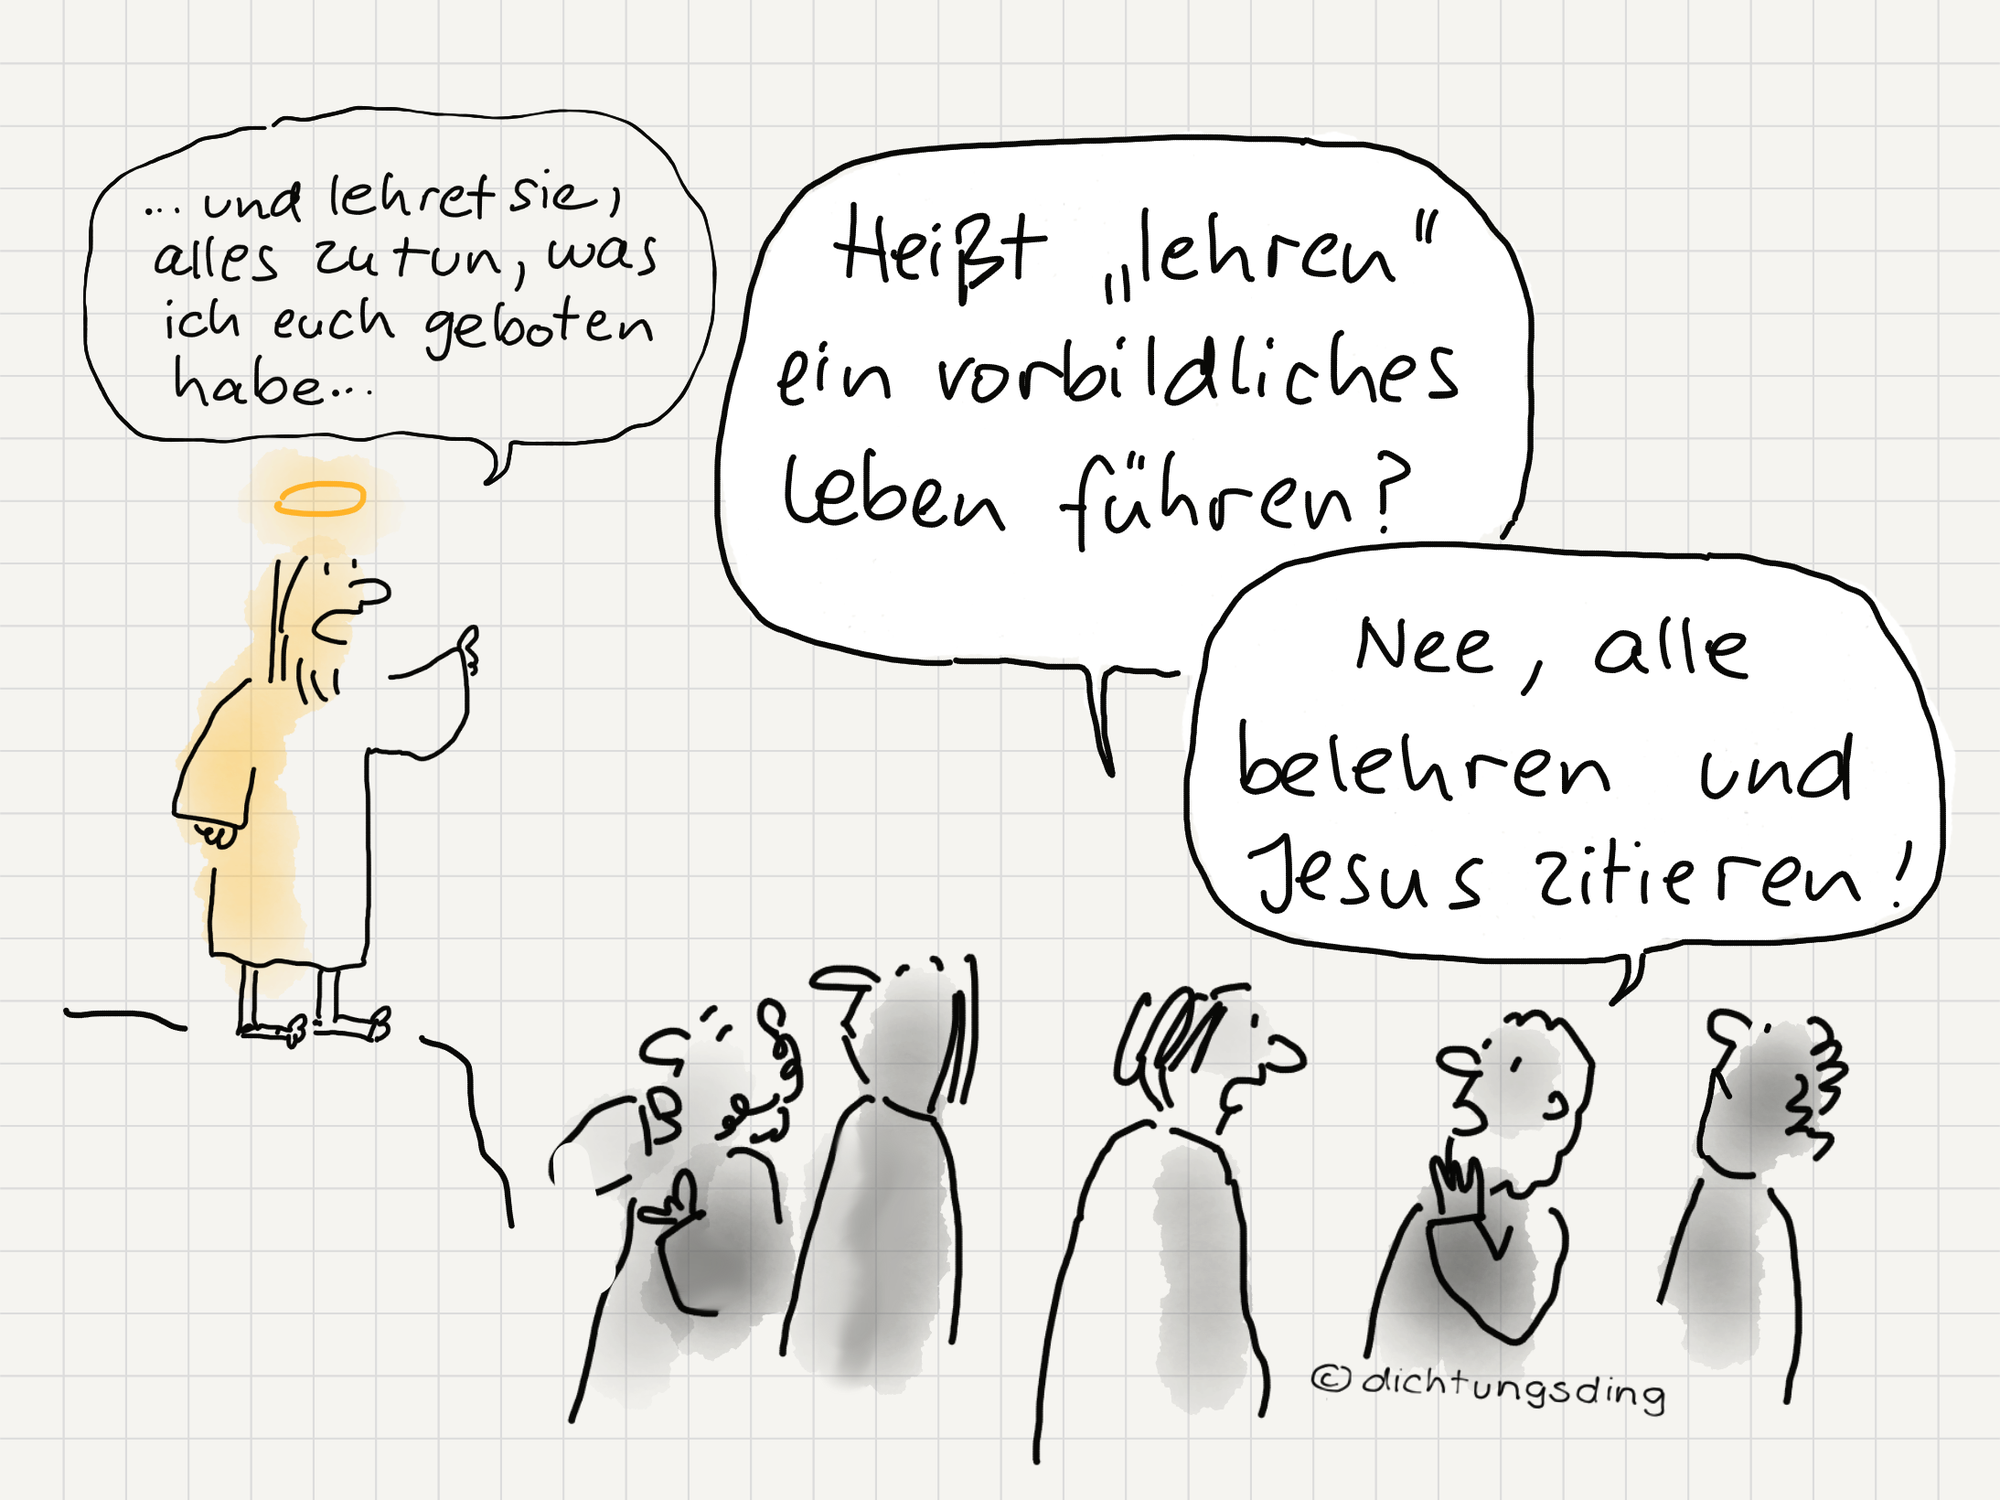 ... und lehret sie,
alles zu tun, was
ich euch geboten
habe...
Heißt „lehren“
ein vorbildliches
Leben führen?
Nee, alle
belehren und
Jesus zitieren!
© dichtungsding